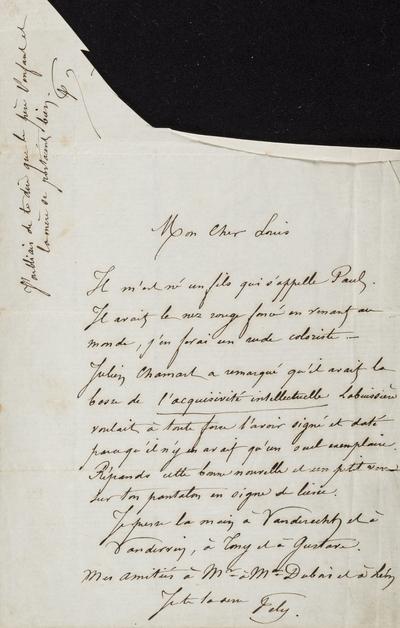 Mon Cher Louis
Il m'est né un fils qui s'appelle Paul.
Il avait le nez rouge foncé en venant au
monde, j'en ferai un rude coloriste —
Julien Chamart a remarqué qu'il avait la
bosse de l'acquisivité intellectuelle Labuissière
voulait à toute force l'avoir signé et daté
parcequ'il n'y en avait qu'un seul exemplaire.
Répands cette bonne nouvelle et un p'tit verre
sur ton pantalon en signe de liesse.
Je presse la main à Vanderecht et à
à Tony et à Gustave.
Mes amitiés à Mr à Me Dubois et à
Je te la serre Fély.
J'oubliais de te dire que le père l'enfant et
la mère se portaient bien.